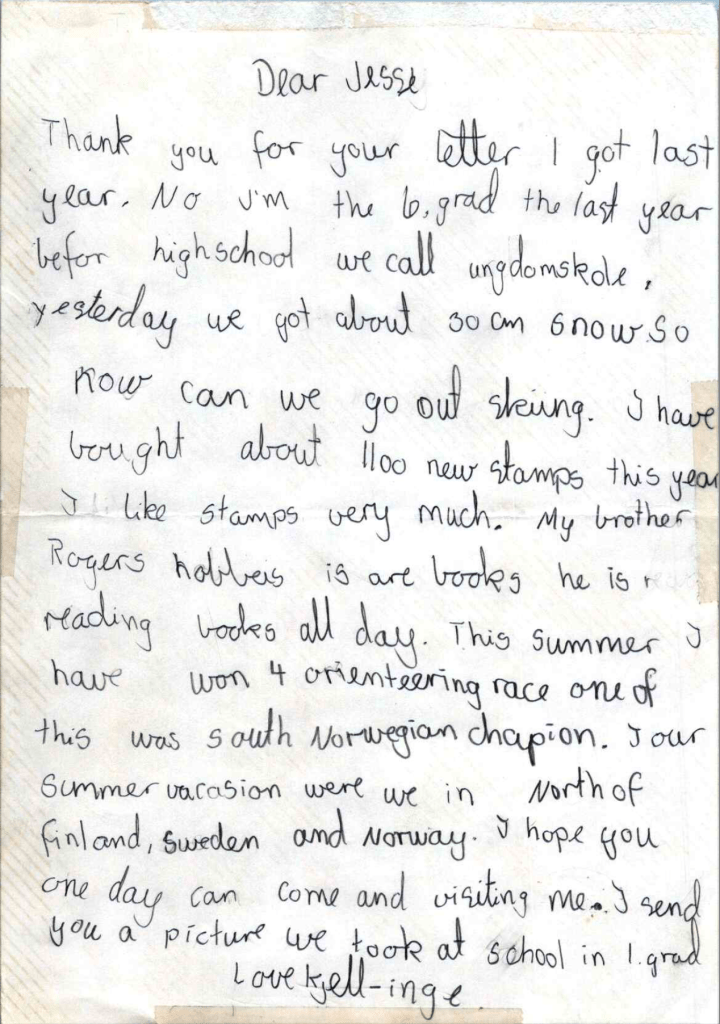 Dear Jesse
Thank you for your letter I got last
year. No I'm the 6. grad the last year
befor highschool we call ungdomskole.
yesterday we got about 30 cm snow. So
now can we go out skiing. I have
bought about 1100 new stamps this year
I like stamps very much. My brother
Rogers hobbeis is are books he is
reading books all day. This summer I
have won 4 orienteering race one of
this was south Norwegian chapion. I our
summer vacasion were we in North of
finland, sweden and Norway. I hope you
one day can come and visiting me. I send
you a picture we took at school in 1. grad
Love Kjell-inge